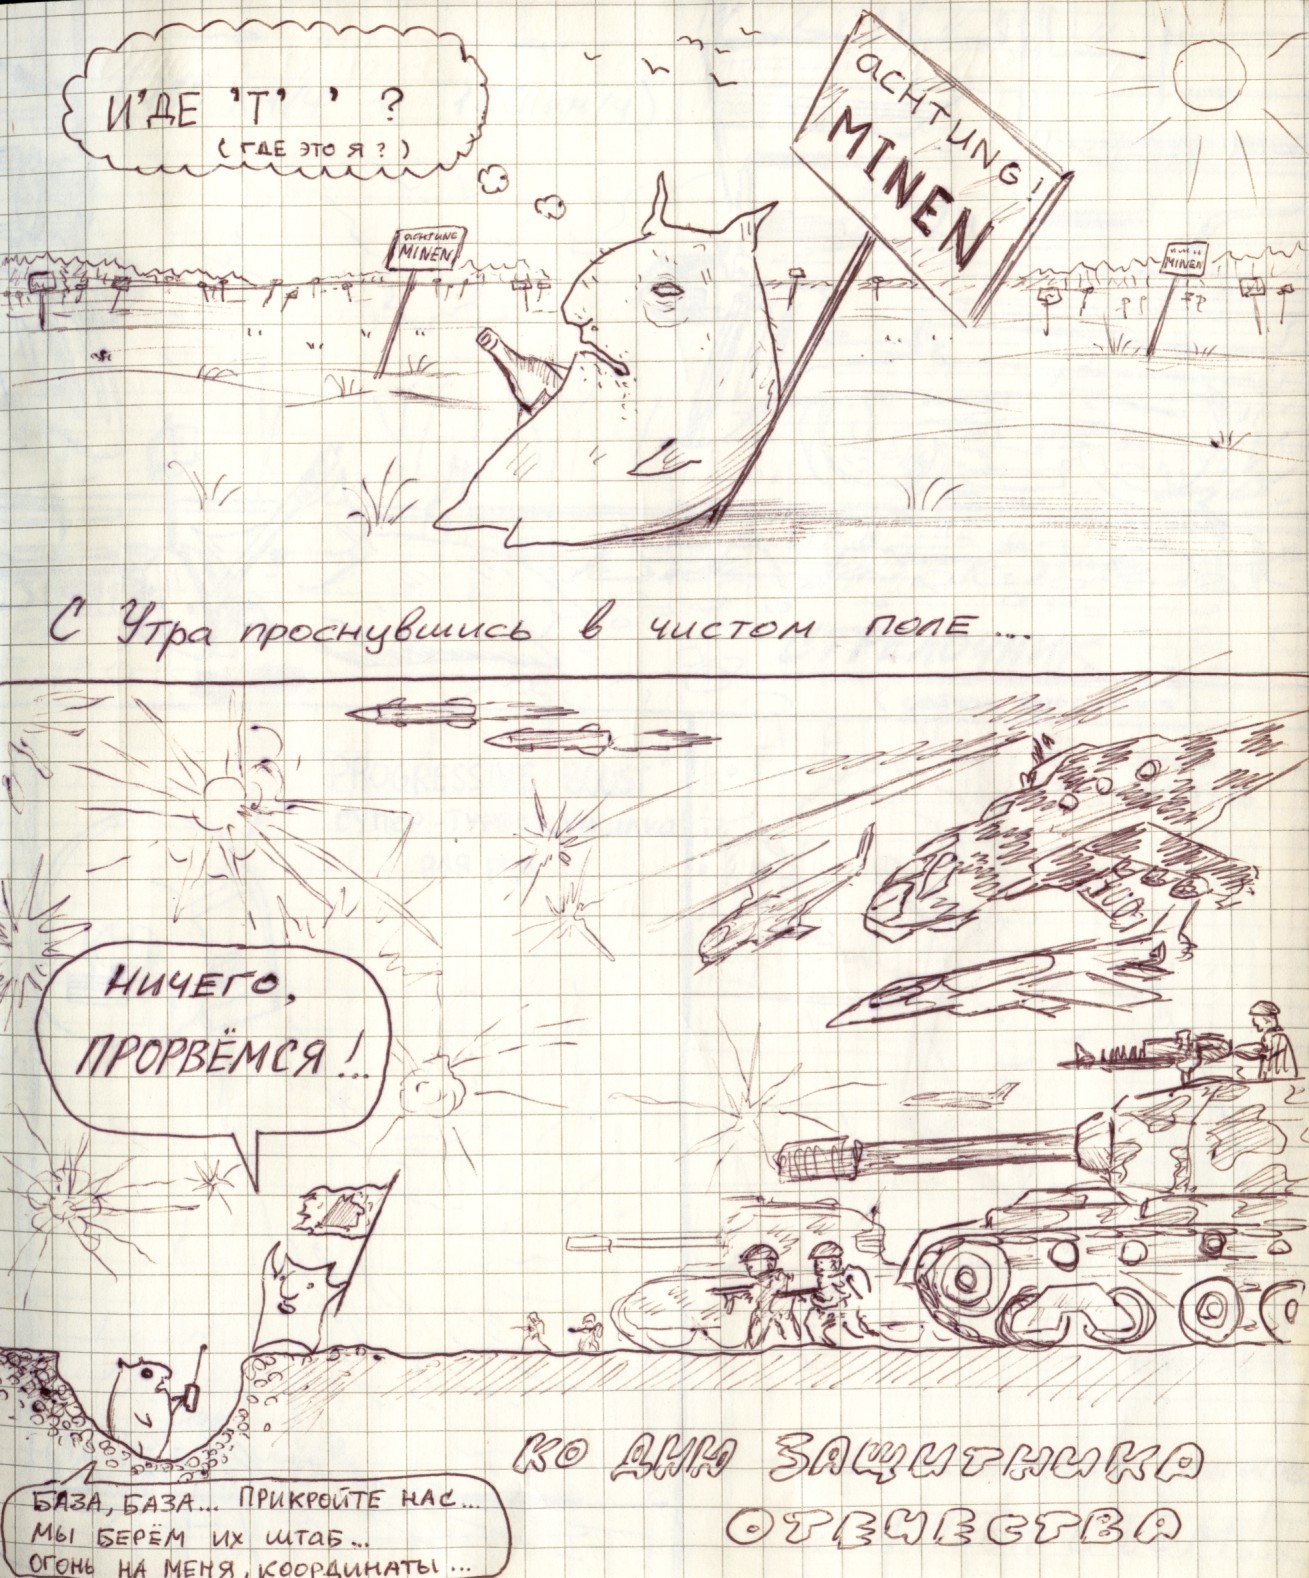 И'ДЕ 'Т' ' ?
( ГДЕ ЭТО Я ? )
ACHTUNG!
MINEN
ACHTUNG
MINEN
MINEN
С Утра проснувшись в чистом поле...
НИЧЕГО,
ПРОРВЁМСЯ!..
БАЗА, БАЗА... ПРИКРОЙТЕ НАС...
МЫ БЕРЁМ ИХ ШТАБ...
ОГОНЬ НА МЕНЯ, КООРДИНАТЫ...
КО ДНЮ ЗАЩИТНИКА
ОТЕЧЕСТВА